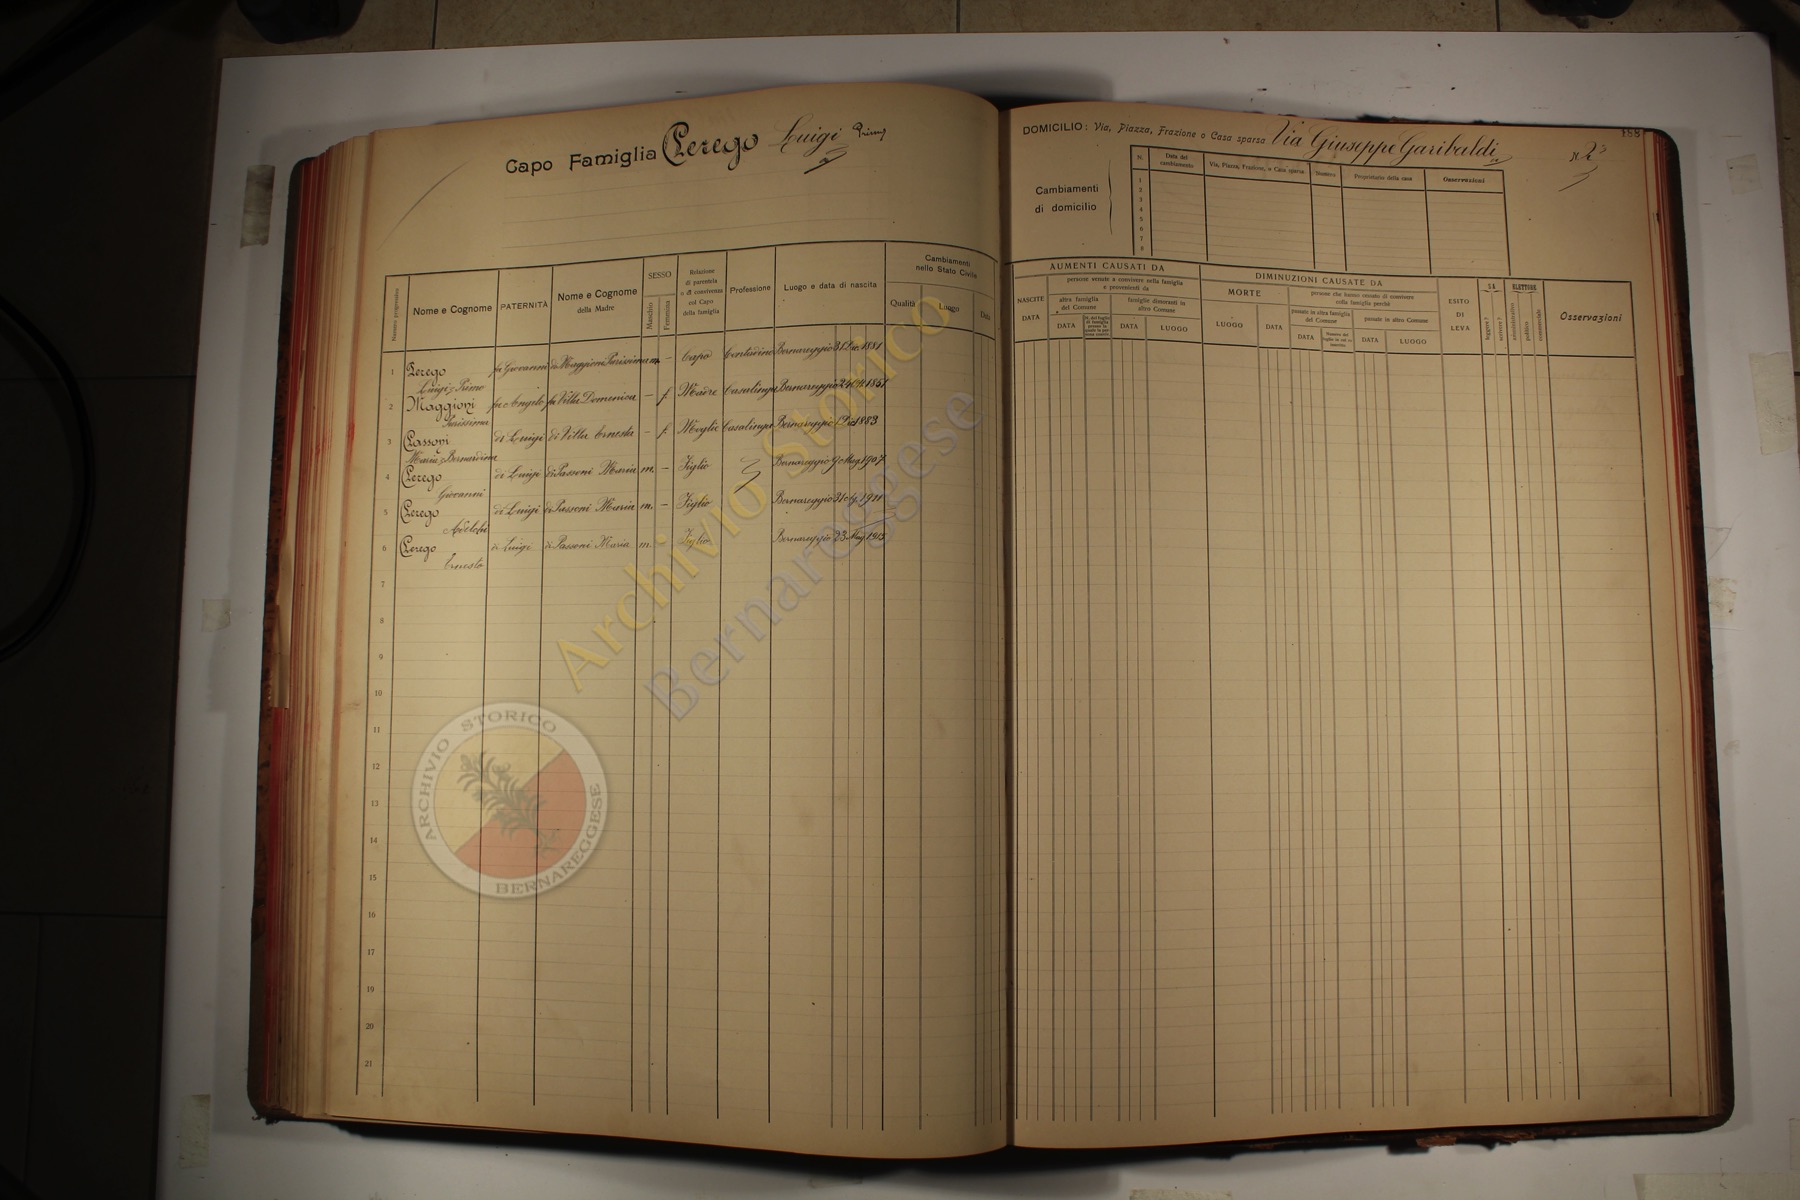 Capo Famiglia Perego Luigi Primo
Numero progressivo
Nome e Cognome
PATERNITÀ
Nome e Cognome
della Madre
SESSO
Maschio
Femmina
Relazione
di parentela
o di convivenza
col Capo
della famiglia
Professione
Luogo e data di nascita
Cambiamenti
nello Stato Civile
Qualità
Luogo
Data
1 Perego fu Giovanni di Maggioni Purissima m. – Capo Contadino Bernareggio 31 Dic. 1881
Luigi Primo
2 Maggioni fu Angelo fu Villa Domenica – f. Madre Casalinga Bernareggio 1851
Purissima
3 Passoni di Luigi di Villa Ernesta – f. Moglie Casalinga Bernareggio 1883
Maria Bernardina
4 Perego di Luigi di Passoni Maria m. – Figlio Bernareggio 9 Mag. 1907
Giovanni
5 Perego di Luigi di Passoni Maria m. – Figlio Bernareggio 1911
Adelchi
6 Perego di Luigi di Passoni Maria m. Figlio Bernareggio 23 Mag. 1915
Ernesto
7
8
9
10
11
12
13
14
15
16
17
19
20
21
DOMICILIO: Via, Piazza, Frazione o Casa sparsa Via Giuseppe Garibaldi N. 2
Cambiamenti
di domicilio
N.
Data del
cambiamento
Via, Piazza, Frazione, o Casa sparsa
Numero
Proprietario della casa
Osservazioni
1
2
3
4
5
6
7
8
AUMENTI CAUSATI DA
NASCITE
DATA
persone venute a convivere nella famiglia
e provenienti da
altra famiglia
del Comune
famiglie dimoranti in
altro Comune
DATA
DATA
LUOGO
DIMINUZIONI CAUSATE DA
MORTE
LUOGO
DATA
persone che hanno cessato di convivere
colla famiglia perchè
passate in altra famiglia
del Comune
passate in altro Comune
DATA
DATA
LUOGO
ESITO
DI
LEVA
SA
leggere ?
scrivere ?
ELETTORE
amministrativo
politico
commerciale
Osservazioni
Archivio Storico
Bernareggese
ARCHIVIO STORICO
BERNAREGGESE